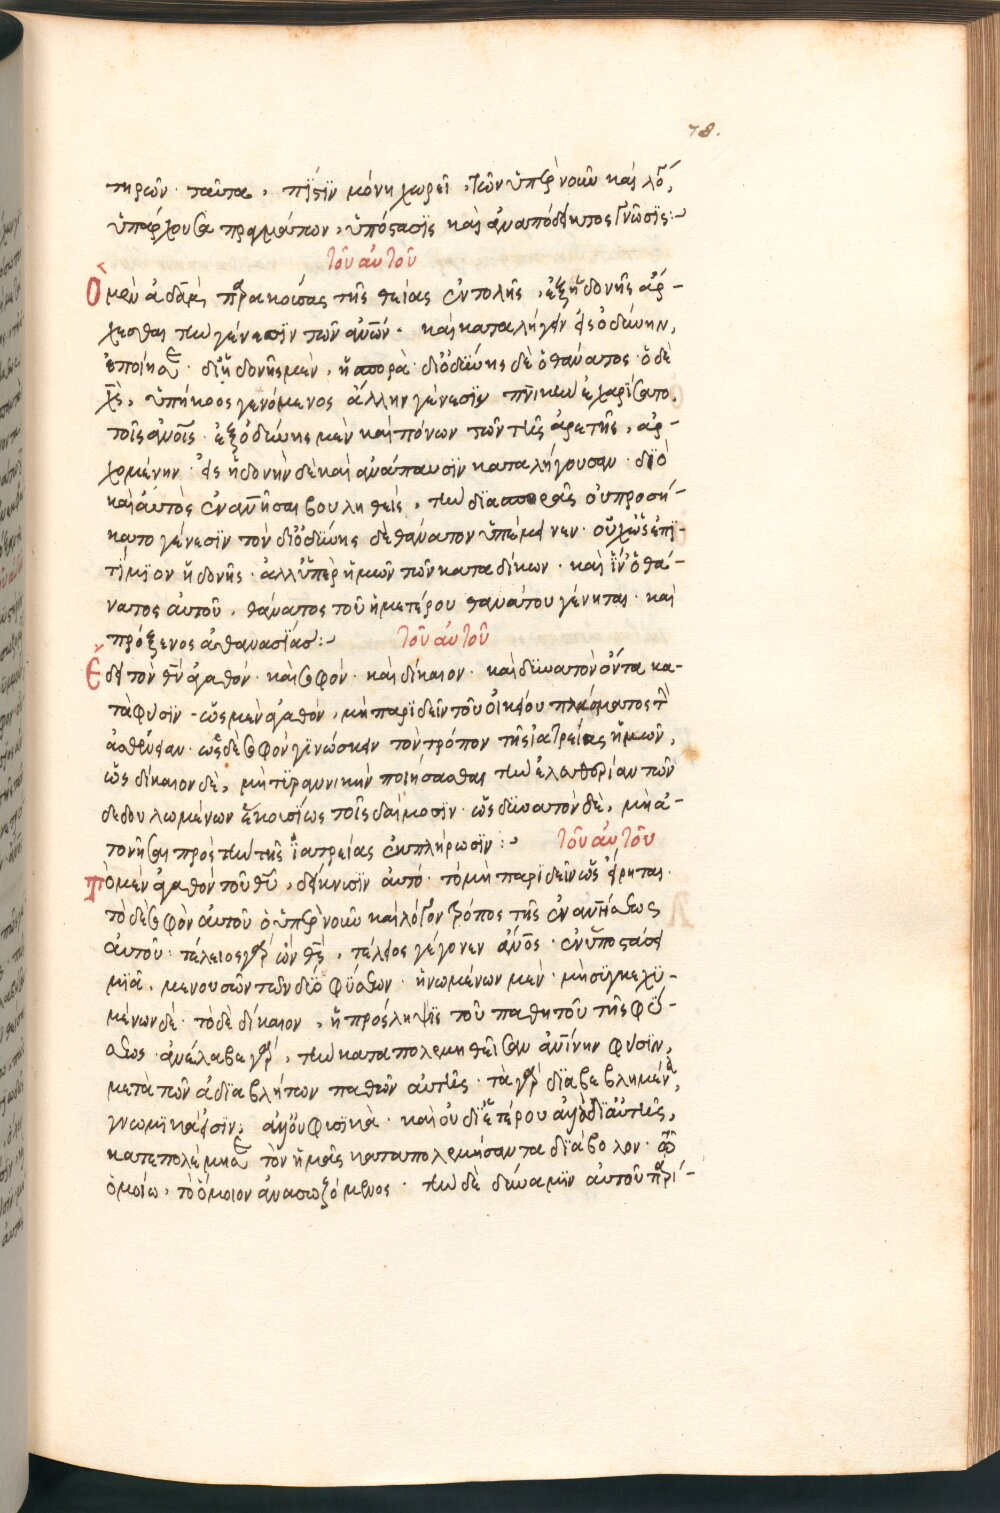 78.
τηρῶν· ταῦτα, πίστϊν μόνη χωρεῖ, τῶν ὑπὲρ νοῦν καὶ λό,
ὑπάρχουσα πραγμάτων, ὑπόστασϊς καὶ ἀναπόδεικτος γνῶσϊς:~
τοῦ αὐτοῦ
Ὁ μὲν ἀδὰμ, παρακούσας τῆς θείας ἐντολῆς, ἐξ ἡδονῆς ἄρ-
χεσθαι τὴν γένεσϊν τῶν ἀνῶν· καὶ καταλήγειν εἰς ὀδύνην,
ἐποίησε· δι ἡδονῆς μὲν, ἡ σπορὰ· δι ὀδύνης δὲ ὁ θάνατος· ὁ δὲ
χς, ὑπήκοος γενόμενος ἄλλην γένεσϊν πνικὴν ἐχαρίσατο,
τοῖς ἀνοις· ἐξ ὀδύνης μὲν καὶ πόνων τῶν τῆς ἀρετῆς, ἀρ-
χομένην· εἰς ἡδονὴν δὲ καὶ ἀνάπαυσϊν καταλήγουσαν· διὸ
καὶ αὐτὸς ἐναν͞ῆσαι βουληθεὶς, τὴν δϊασπορᾶς οὐ προσή-
κατο γένεσϊν τὸν δι ὀδύνης δὲ θάνατον ὑπέμεινεν· οὐχ ὡς ἐπϊ-
τίμϊον ἡδονῆς· ἀλλ ὑπὲρ ἡμῶν τῶν καταδίκων· καὶ ἵν ὁ θά-
νατος αὐτοῦ, θάνατος τοῦ ἡμετέρου θανάτου γένηται· καὶ
πρόξενος ἀθανασίας:~ τοῦ αὐτοῦ
Ἔδει τὸν θν ἀγαθὸν· καὶ σοφὸν· καὶ δίκαιον· καὶ δυνατὸν ὄντα κα-
τὰ φύσϊν· ὡς μὲν ἀγαθὸν, μὴ παρϊδεῖν τοῦ οἰκείου πλάσματος τὴ
ἀσθένειαν· ὡς δὲ σοφὸν γϊνώσκειν τὸν τρόπον τῆς ἰατρείας ἡμῶν,
ὡς δίκαιον δὲ, μὴ τϋραννικὴν ποιήσασθαι τὴν ἐλευθερίαν τῶν
δεδουλωμένων ἑκουσίως τοῖς δαίμοσϊν· ὡς δυνατὸν δὲ, μὴ ἀ-
τονῆσαι πρὸς τὴν τῆς ἰατρείας ἐκπλήρωσϊν:~ τοῦ αὐτοῦ
Τὸ μὲν ἀγαθὸν τοῦ θυ, δείκνυσϊν αὐτὸ· τὸ μὴ παριδεῖν ὡς εἴρηται·
τὸ δὲ σοφὸν αὐτοῦ ὁ ὑπὲρ νοῦν καὶ λόγον τρόπος τῆς ἐνανήσεως
αὐτοῦ· τέλειος γὰρ ὢν θς, τέλειος γέγονεν ἄνος· ἐν ὑποστάσει
μϊᾶ, μενουσῶν τῶν δύο φύσεων· ἡνωμένων μὲν· μὴ σϋγκεχϋ-
μένων δὲ· τὸ δὲ δίκαιον, ἡ πρόσληψϊς τοῦ παθητοῦ τῆς φύ-
σεως· ἀνέλαβε γὰρ, τὴν καταπολεμηθεῖσαν ἀνίνην φύσϊν,
μετὰ τῶν ἀδϊαβλήτων παθῶν αὐτῆς· τὰ γὰρ δϊαβεβλημένα,
γνωμϊκά εἰσϊν, ἀλλ οὐ φυσϊκὰ· καὶ οὐ δι ἑτέρου ἀλλὰ δϊ αὐτῆς,
κατεπολέμησε τὸν ἡμᾶς καταπολεμήσαντα δϊάβολον· τῷ
ὁμοίω, τὸ ὅμοιον ἀνασωζόμενος· τὴν δὲ δύναμϊν αὐτοῦ παρί-